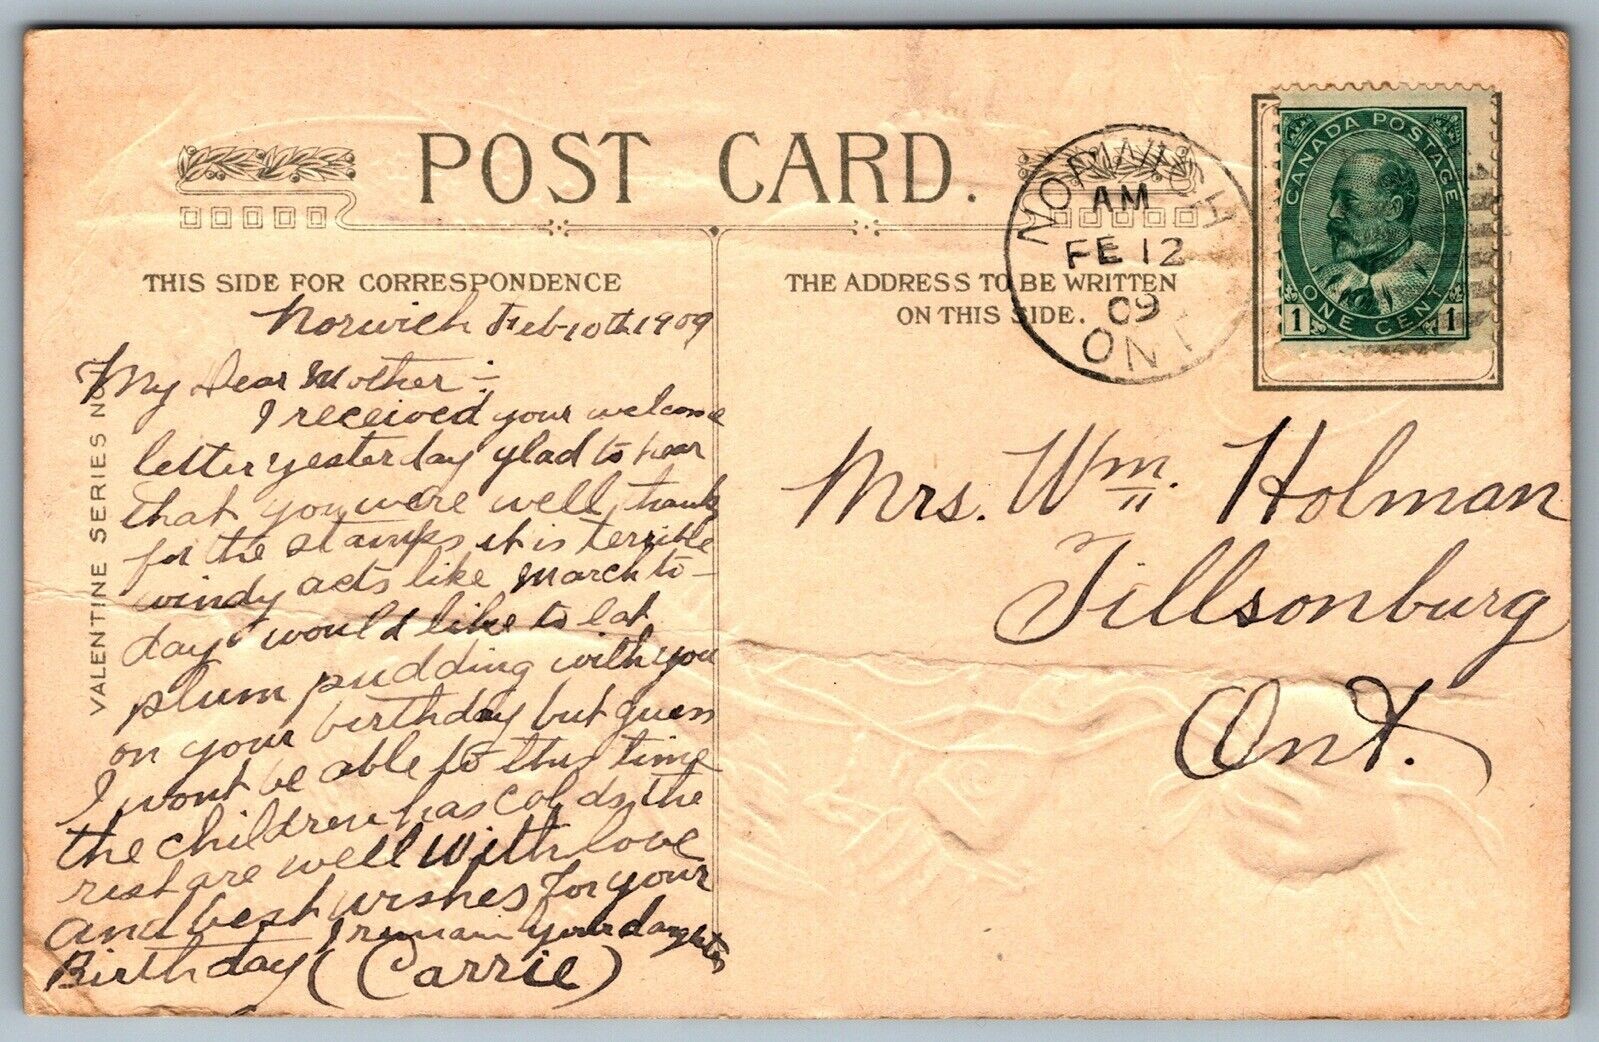 POST CARD.
THIS SIDE FOR CORRESPONDENCE
THE ADDRESS TO BE WRITTEN
ON THIS SIDE.
NORWICH
AM
FE 12
09
ONT
CANADA POSTAGE
1 ONE CENT 1
VALENTINE SERIES NO.
Norwich Feb-10th 1909
My Dear Mother :-
I received your welcome
letter yesterday glad to hear
that you were well, thanks
for the stamps it is terrible
windy acts like March to-
day would like to eat
plum pudding with you
on your birthday but guess
I wont be able to this time
the children has colds the
rest are well With love
and best wishes for your
Birthday I remain your daughter
(Carrie)
Mrs. Wm. Holman
Tillsonburg
Ont.